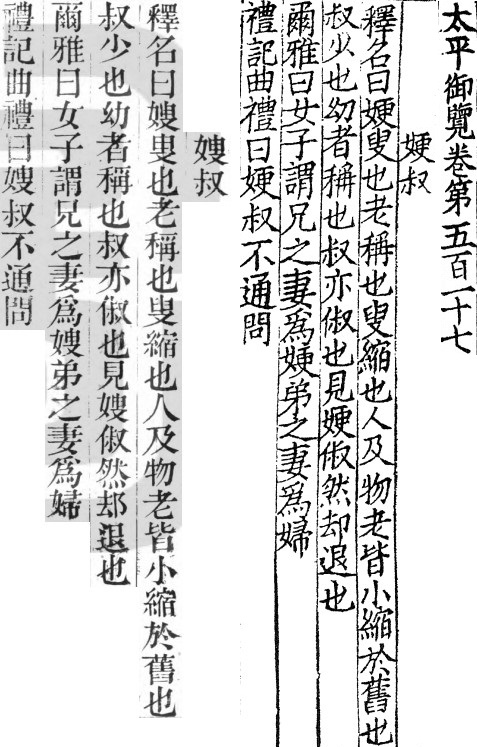 太平御覽卷第五百一十七
㛐叔
釋名曰㛐叟也老稱也叟縮也人及物老皆小縮於舊也
叔少也幼者稱也叔亦俶也見㛐俶然却退也
爾雅曰女子謂兄之妻爲㛐弟之妻爲婦
禮記曲禮曰㛐叔不通問
嫂叔
釋名曰嫂叟也老稱也叟縮也人及物老皆小縮於舊也
叔少也幼者稱也叔亦俶也見嫂俶然却退也
爾雅曰女子謂兄之妻爲嫂弟之妻爲婦
禮記曲禮曰嫂叔不通問